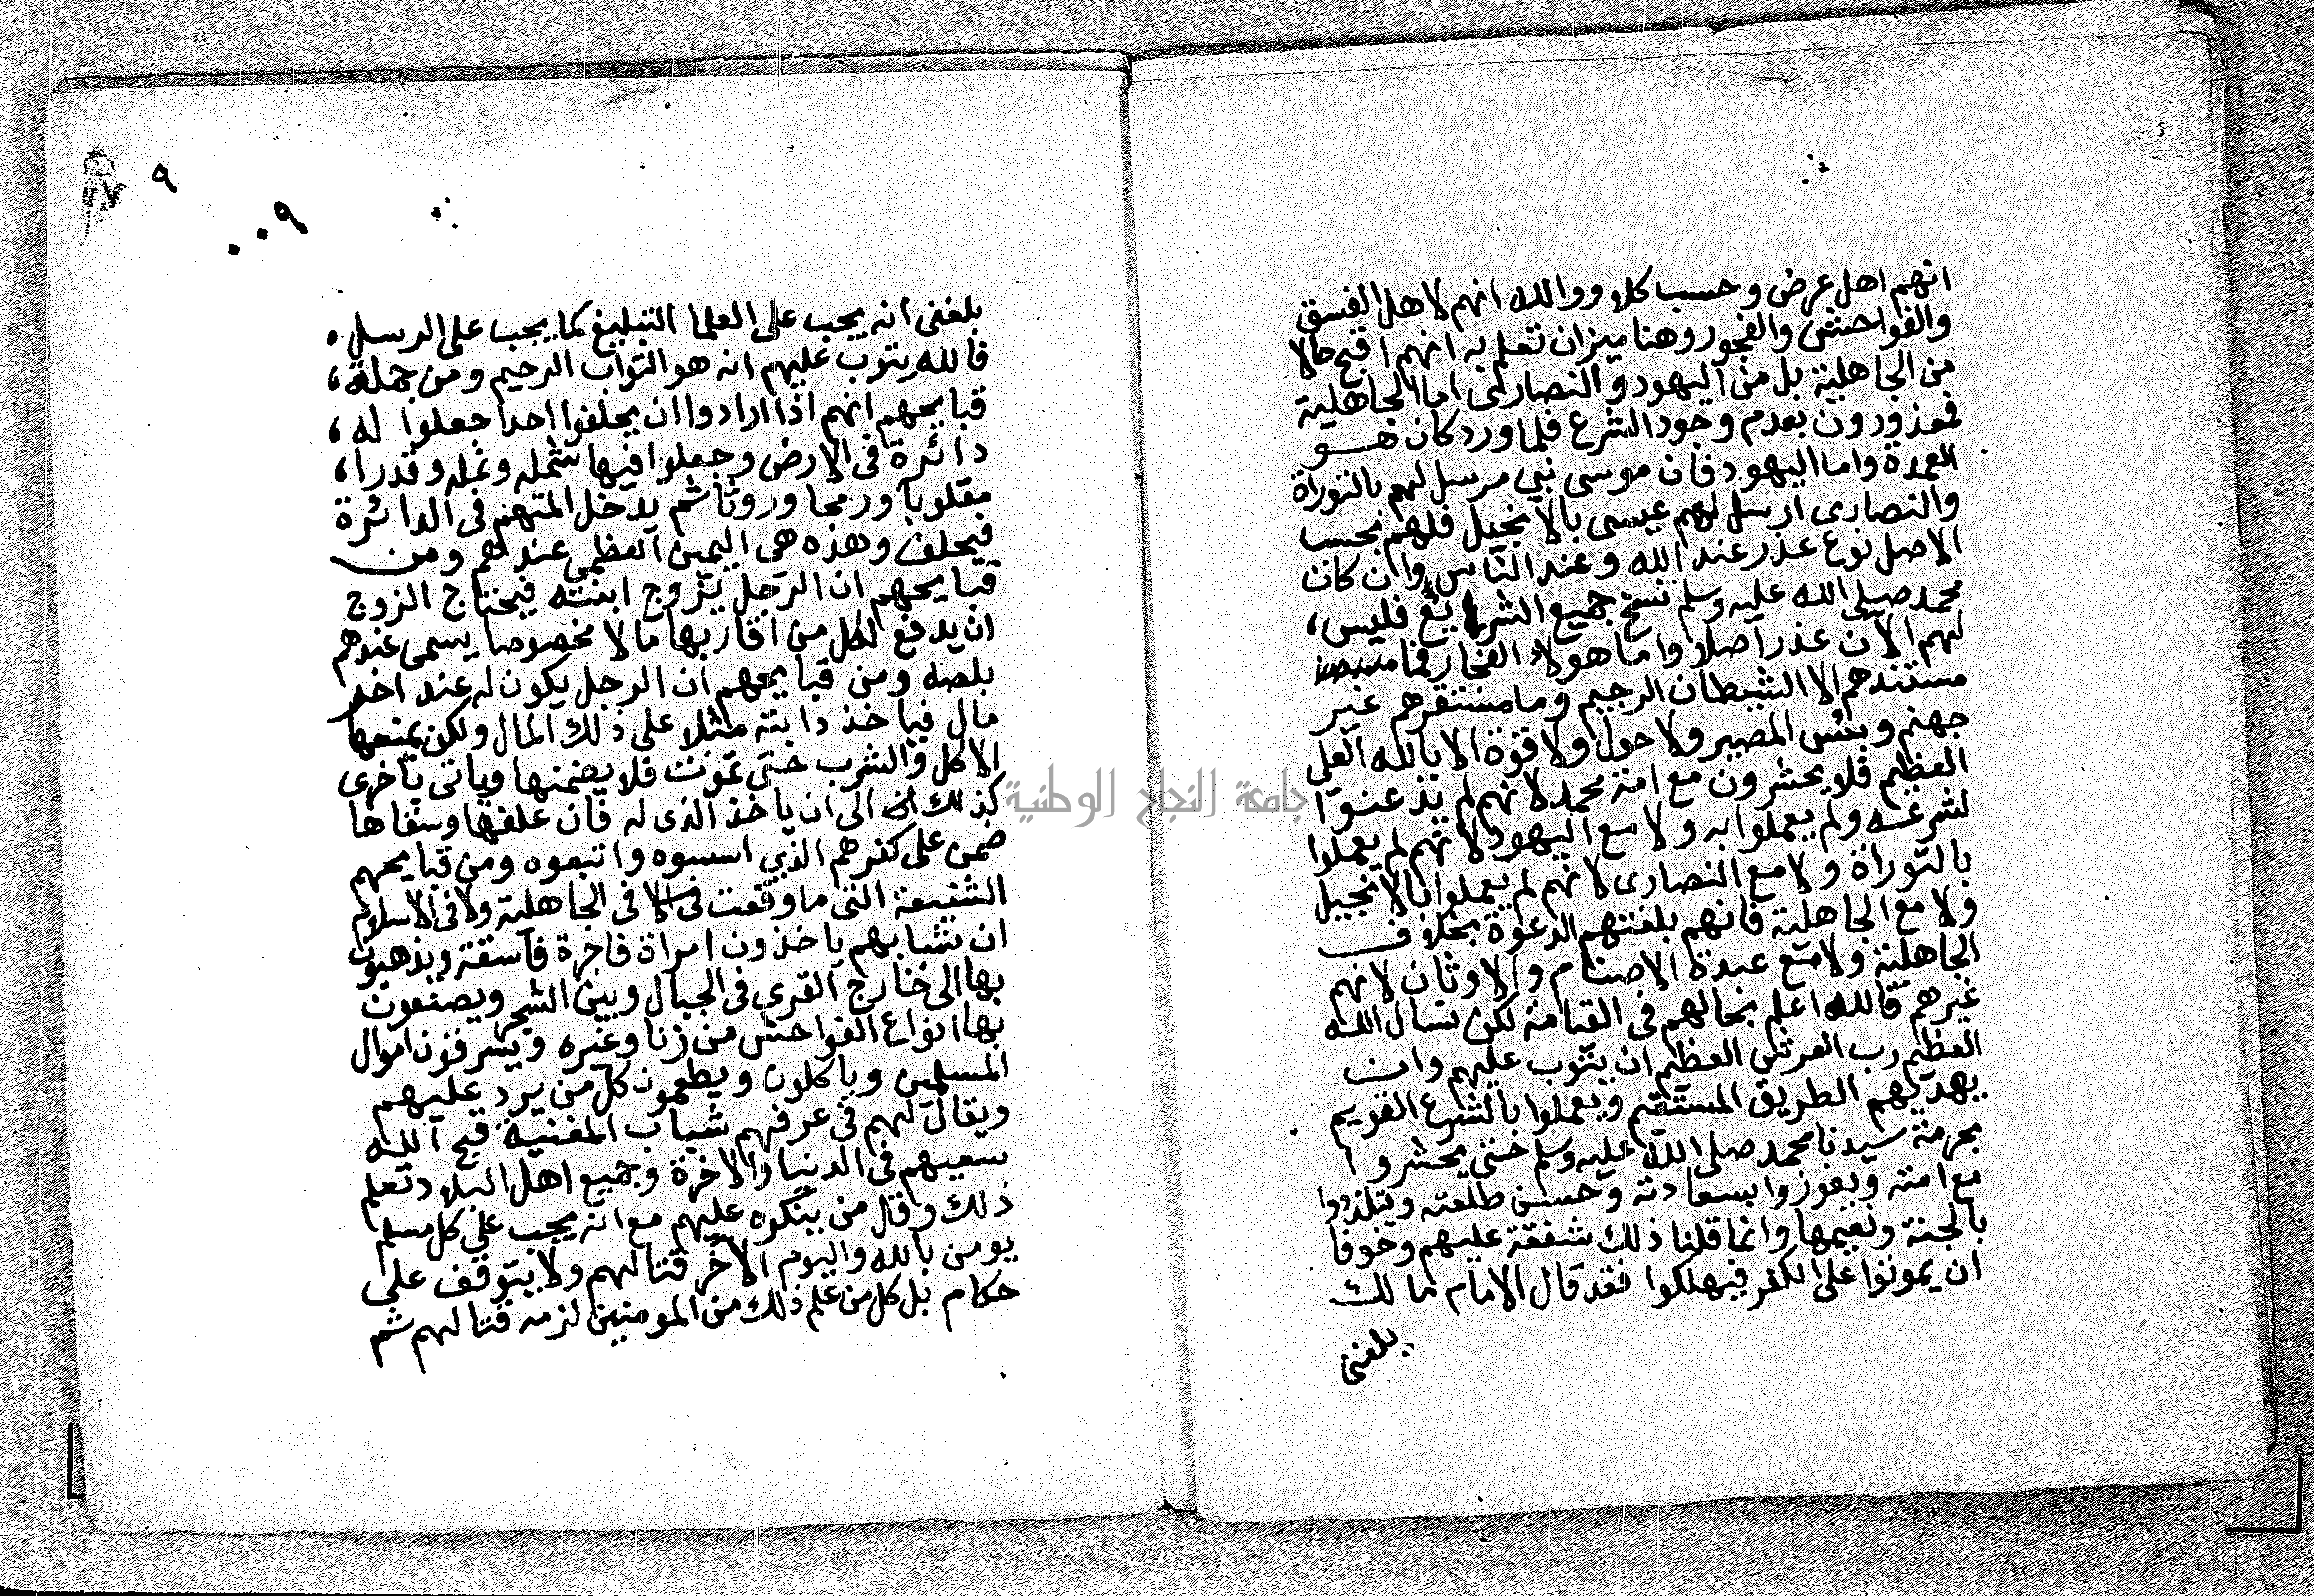 انهم اهل عرض وحسب كلا ووالله انهم لاهل الفسق
والفواحش والفجور وهنا ميزان تعلم به انهم اقبح حالا
من الجاهلية بل من اليهود والنصارى اما الجاهلية
فمعذورون بعدم وجود الشرع فلما ورد كان هو
العمدة واما اليهود فان موسى نبي مرسل لهم بالتوراة
والنصارى ارسل لهم عيسى بالانجيل فلهم بحسب
الاصل نوع عذر عند الله وعند الناس وان كان
محمد صلى الله عليه وسلم نسخ جميع الشرايع فليس،
لهم الان عذر اصلا واما هولاء الفجار فما
مستندهم الا الشيطان الرجيم وما مستقرهم غير
جهنم وبئس المصير ولا حول ولا قوة الا بالله العلي
العظيم فلا يحشرون مع امة محمد لانهم لم يذعنوا
لشرعه ولم يعملوا به ولا مع اليهود لانهم لم يعملوا
بالتوراة ولا مع النصارى لانهم لم يعملوا بالانجيل
ولا مع الجاهلية فانهم بلغتهم الدعوة بخلاف
الجاهلية ولا مع عبدة الاصنام والاوثان لانهم
غيرهم فالله اعلم بحالهم في القيامة لكن نسال الله
العظيم رب العرش العظيم ان يتوب عليهم وان
يهديهم الطريق المستقيم ويعملوا بالشرع القويم
بحرمة سيدنا محمد صلى الله عليه وسلم حتى يحشروا
مع امته ويفوزوا بسعادته وحسن طلعته ويتلذذوا
بالجنة ونعيمها وانما قلنا ذلك شفقة عليهم وخوفا
ان يموتوا على الكفر فيهلكوا فقد قال الامام مالك
بلغني
٩
٠٠٩
بلغني انه يجب على العلما التبليغ كما يجب على الرسل ٥
فالله يتوب عليهم انه هو التواب الرحيم ومن جملة،
قبايحهم انهم اذا ارادوا ان يحلفوا احدا جعلوا له،
دائرة في الارض وجعلوا فيها شمله ونمله وقدرا،
مقلوبا ورمحا وروثا ثم يدخل المتهم في الدائرة
فيحلف وهذه هي اليمين العظمي عندهم ومن
قبايحهم ان الرجل يزوج ابنته فيحتاج الزوج
ان يدفع لكل من اقاربها مالا مخصوصا يسمى عندهم
بلصه ومن قبايحهم ان الرجل يكون له عند اخر
مال فياخذ دابته مثلا على ذلك المال ولكن يمنعها
الاكل والشرب حتى تموت فلا يضمنها وياتى باخرى
كذلك الى ان ياخذ الذى له فان علفها وسقاها
ضمن على كفرهم الذي اسسوه واتبعوه ومن قبايحهم
الشنيعة التى ما وقعت لا في الجاهلية ولا في الاسلام
ان شبابهم ياخذون امراة فاجرة فاسقة ويذهبون
بها الى خارج القرى في الجبال وبين الشجر ويصنعون
بها انواع الفواحش من زنا وغيره ويسرفون اموال
المسلمين وياكلون ويطعمون كل من يرد عليهم
ويقال لهم في عرفهم شباب المغنية قبح الله
سعيهم في الدنيا والاخرة وجميع اهل البلاد تعلم
ذلك وقل من ينكره عليهم مع انه يجب على كل مسلم
يومن بالله واليوم الاخر قتالهم ولا يتوقف على
حكام بل كل من علم ذلك من المومنين لزمه قتالهم ثم
جامعة النجاح الوطنية